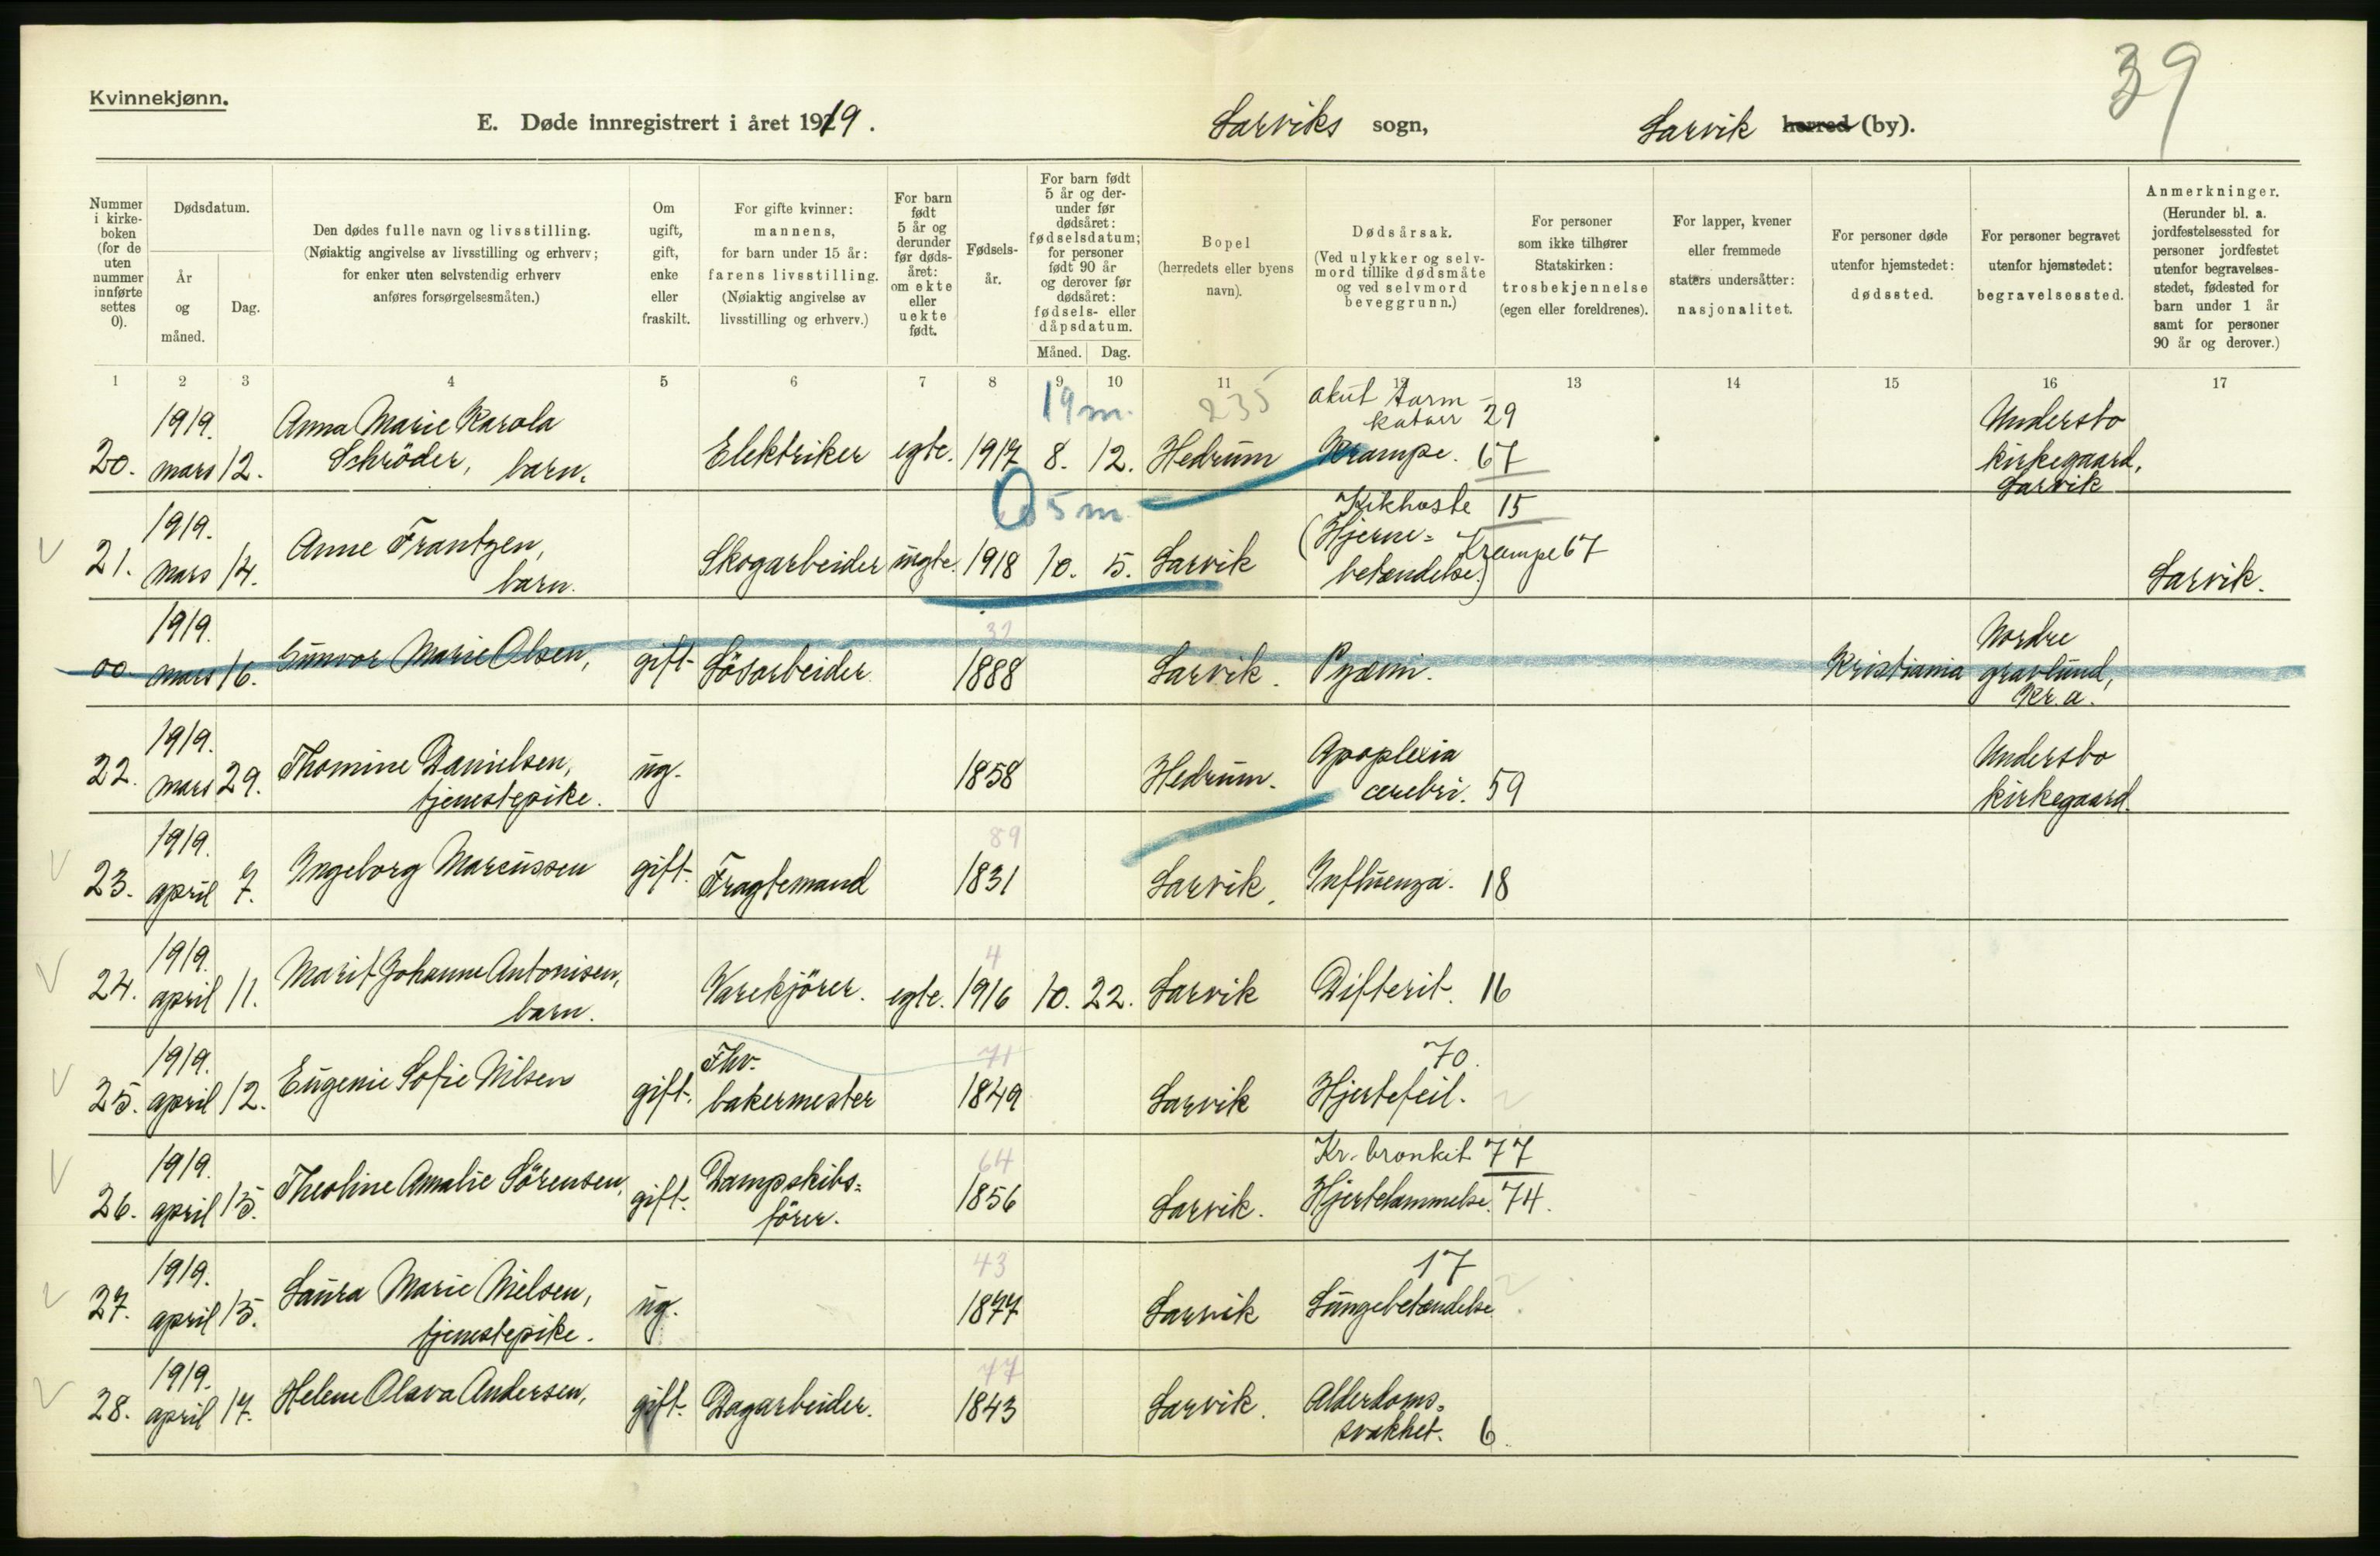 39
Kvinnekjønn.
E. Døde innregistrert i året 1919.
Larviks sogn,
Larvik herred (by).
Nummer i kirkeboken (for de uten nummer innførte settes 0).
Dødsdatum.
År og måned.
Dag.
Den dødes fulle navn og livsstilling.
(Nøiaktig angivelse av livsstilling og erhverv;
for enker uten selvstendig erhverv
anføres forsørgelsesmåten.)
Om ugift, gift, enke eller fraskilt.
For gifte kvinner:
mannens,
for barn under 15 år:
farens livsstilling.
(Nøiaktig angivelse av
livsstilling og erhverv.)
For barn født 5 år og derunder før dødsåret: om ekte eller uekte født.
Fødselsår.
For barn født 5 år og derunder før dødsåret: fødselsdatum; for personer født 90 år og derover før dødsåret: fødsels- eller dåpsdatum.
Måned. Dag.
Bopel
(herredets eller byens
navn).
Dødsårsak.
(Ved ulykker og selvmord tillike dødsmåte og ved selvmord beveggrunn.)
For personer
som ikke tilhører
Statskirken:
trosbekjennelse
(egen eller foreldrenes).
For lapper, kvener
eller fremmede
staters undersåtter:
nasjonalitet.
For personer døde
utenfor hjemstedet:
dødssted.
For personer begravet
utenfor hjemstedet:
begravelsessted.
Anmerkninger.
(Herunder bl. a.
jordfestelsessted for
personer jordfestet
utenfor begravelses-
stedet, fødested for
barn under 1 år
samt for personer
90 år og derover.)
1 2 3 4 5 6 7 8 9 10 11 12 13 14 15 16 17
20. 1919. mars 12. Anna Marie Karola Schröder, barn. Elektriker egte. 1917 8. 12. 19 m. Hedrum 235 akut tarmkatarr 29 Krampe. 67 Undersbo kirkegaard, Larvik
21. 1919. mars 14. Anne Frantzen, barn. Skogarbeider uegte. 1918 10. 5. 0 5 m. Larvik Kikhoste 15 (Hjerne=betændelse.) Krampe 67 Larvik.
00. 1919. mars 16. Gunvor Marie Olsen, gift. Løsarbeider. 1888 Larvik. Pyæmi. Kristiania Nordre gravlund, Kr.a.
22. 1919. mars 29. Thomine Danielsen, tjenestepike. ug. 1858 Hedrum. Apoplexia cerebri. 59 Undersbo kirkegaard.
23. 1919. april 7. Ingeborg Marcussen gift. Fragtemand 89 1831 Larvik. Influenza. 18
24. 1919. april 11. Marit Johanne Antonisen, barn. Varekjörer. egte. 4 1916 10. 22. Larvik Difterit. 16
25. 1919. april 12. Eugenie Sofie Nilsen gift. Fhv. bakermester 71 1849 Larvik 70 Hjertefeil.
26. 1919. april 15. Theoline Amalie Sörensen, gift. Dampskibs=förer. 64 1856 Larvik. Kr. bronkit 77 Hjertelammelse. 74.
27. 1919. april 15. Laura Marie Nielsen, tjenestepike. ug. 43 1877 Larvik 17 Lungebetændelse.
28. 1919. april 17. Helene Olava Andersen, gift. Dagarbeider. 77 1843 Larvik. Alderdoms=svakhet. 6.